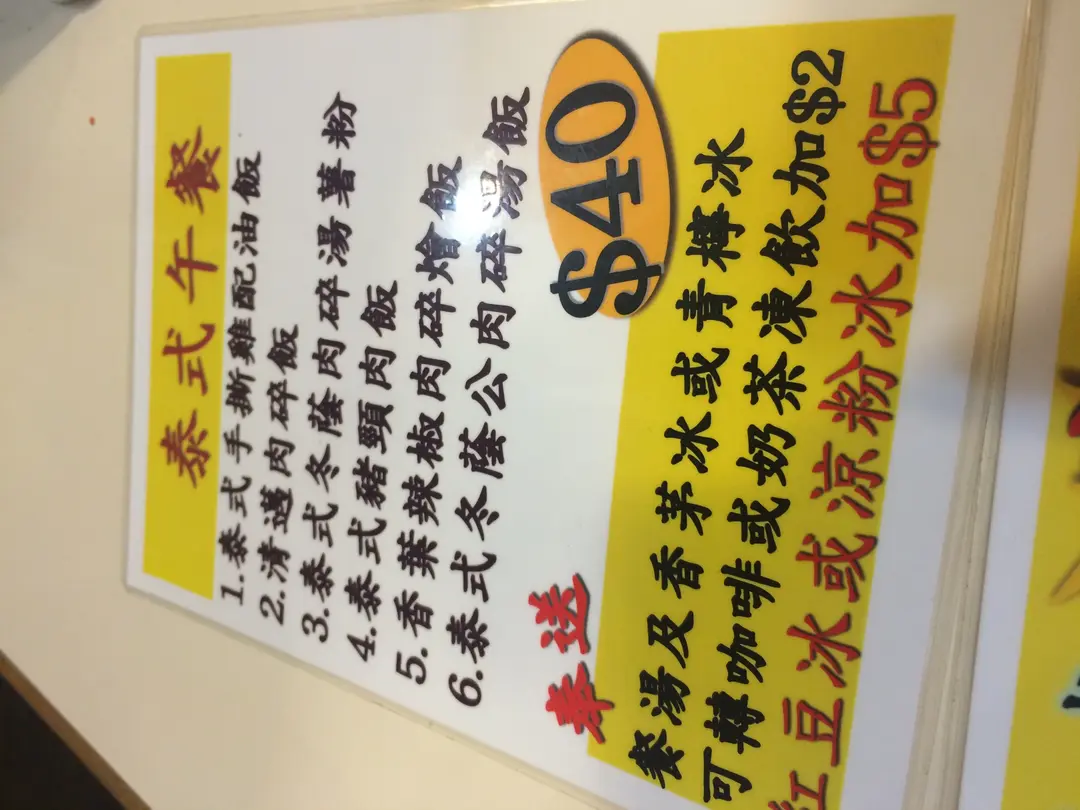 泰式午餐
1.泰式手撕雞配油飯
2.清邁肉碎飯
3.泰式冬蔭肉碎湯薯粉
4.泰式豬頸肉飯
5.香葉辣椒肉碎燴飯
6.泰式冬蔭公肉碎湯飯
$40
奉送
餐湯及香茅冰或青檸冰
可轉咖啡或奶茶凍飲加$2
紅豆冰或涼粉冰加$5